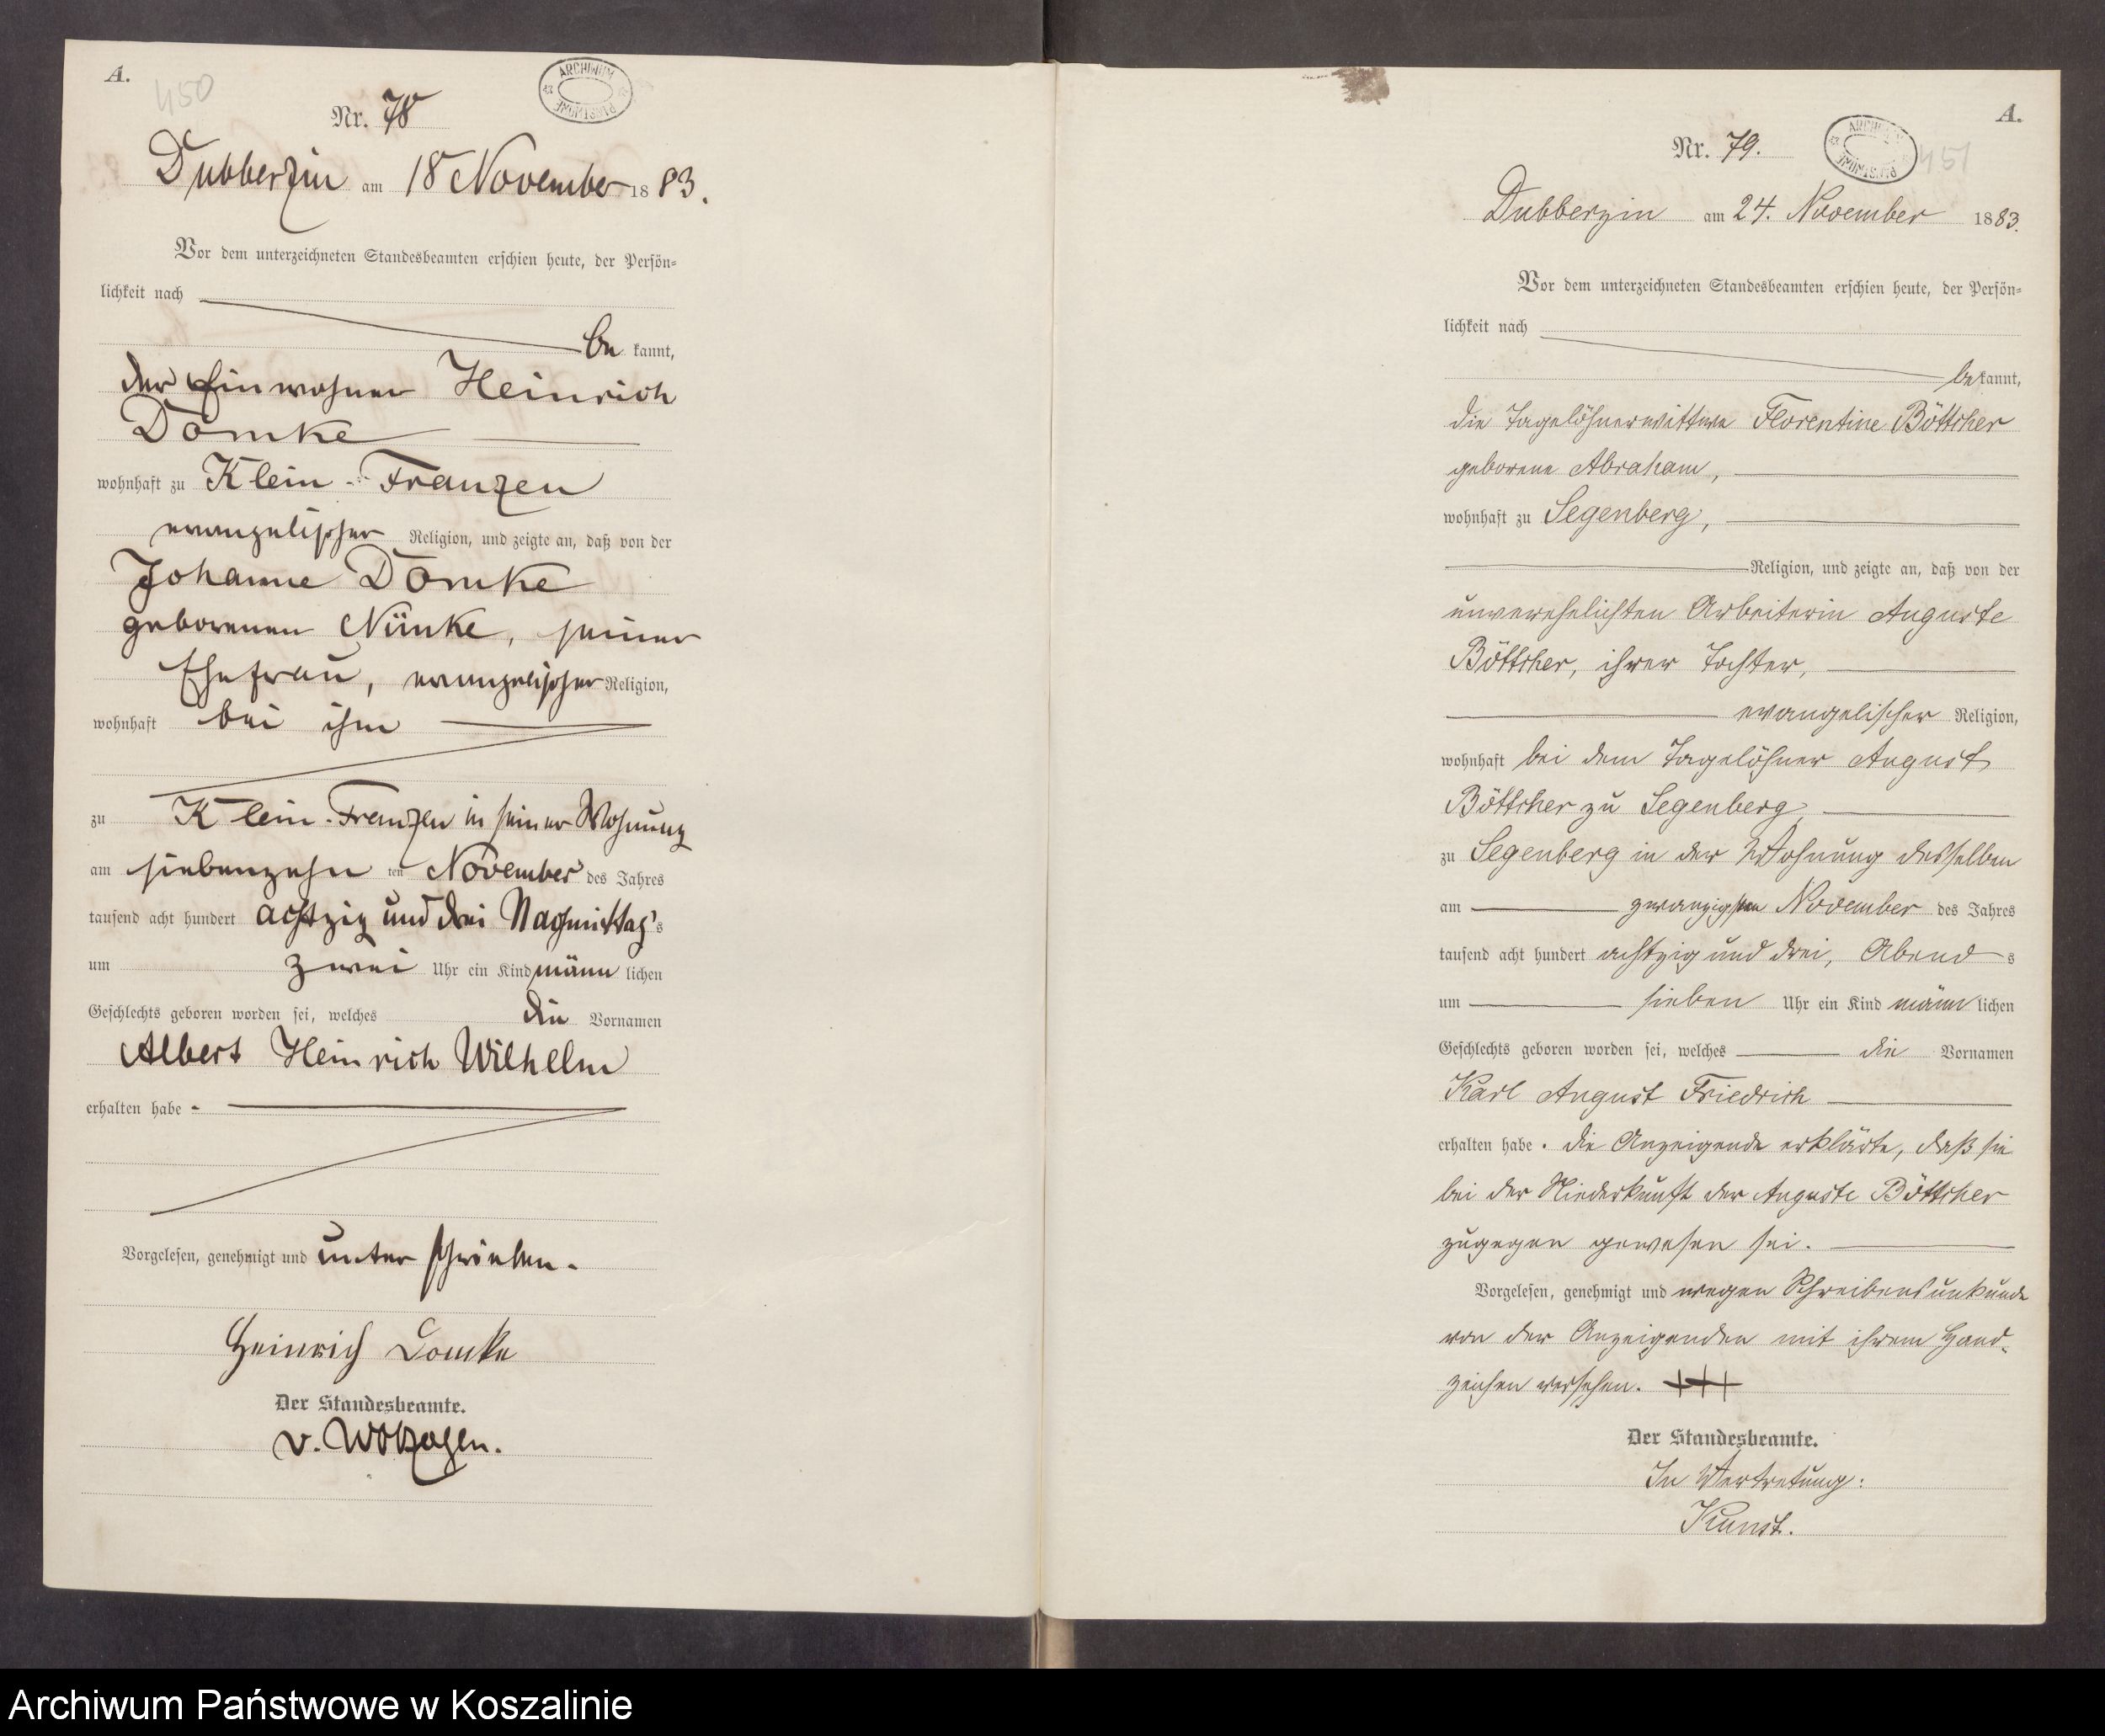 A.
450
ARCHIWUM PAŃSTWOWE
Nr. 78
Dubberzin am 18 November 1883.
Vor dem unterzeichneten Standesbeamten erschien heute, der Persön-
lichkeit nach
be kannt,
der Einwohner Heinrich
Domke
wohnhaft zu Klein-Franzen
evangelischer Religion, und zeigte an, daß von der
Johanne Domke
geborenen Nünke, seiner
Ehefrau, evangelischer Religion,
wohnhaft bei ihm
zu Klein-Franzen in seiner Wohnung
am siebenzehn ten November des Jahres
tausend acht hundert achtzig und drei Nachmittags
um zwei Uhr ein Kind männlichen
Geschlechts geboren worden sei, welches die Vornamen
Albert Heinrich Wilhelm
erhalten habe
Vorgelesen, genehmigt und unterschrieben.
Heinrich Domke
Der Standesbeamte.
v. Wolzogen.
A.
451
ARCHIWUM PAŃSTWOWE
Nr. 79.
Dubberzin am 24. November 1883.
Vor dem unterzeichneten Standesbeamten erschien heute, der Persön-
lichkeit nach
bekannt,
die Tagelöhnerwittwe Florentine Böttcher
geborene Abraham,
wohnhaft zu Segenberg,
Religion, und zeigte an, daß von der
unverehelichten Arbeiterin Auguste
Böttcher, ihrer Tochter,
evangelischer Religion,
wohnhaft bei dem Tagelöhner August
Böttcher zu Segenberg,
zu Segenberg in der Wohnung desselben
am zwanzigsten November des Jahres
tausend acht hundert achtzig und drei, Abends
um sieben Uhr ein Kind männlichen
Geschlechts geboren worden sei, welches die Vornamen
Karl August Friedrich
erhalten habe. Die Anzeigende erklärte, daß sie
bei der Niederkunft der Auguste Böttcher
zugegen gewesen sei.
Vorgelesen, genehmigt und wegen Schreibensunkunde
von der Anzeigenden mit ihrem Hand-
zeichen versehen. +++
Der Standesbeamte.
In Vertretung:
Kunst.
Archiwum Państwowe w Koszalinie